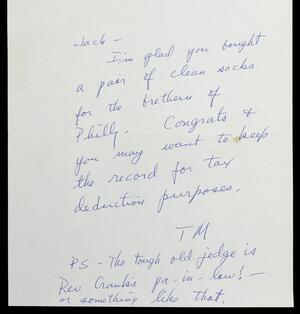 Jack –
I'm glad you bought
a pair of clean socks
for the brethern of
Philly. Congrats &
you may want to keep
the record for tax
deduction purposes.
TM
PS – The tough old jedge is
Rev Crank's pa-in-law! –
or something like that.